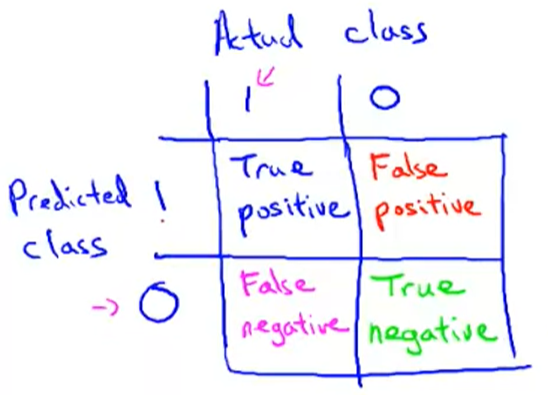 Actual class
1 0
Predicted 1
class
True positive
False positive
0
False negative
True negative